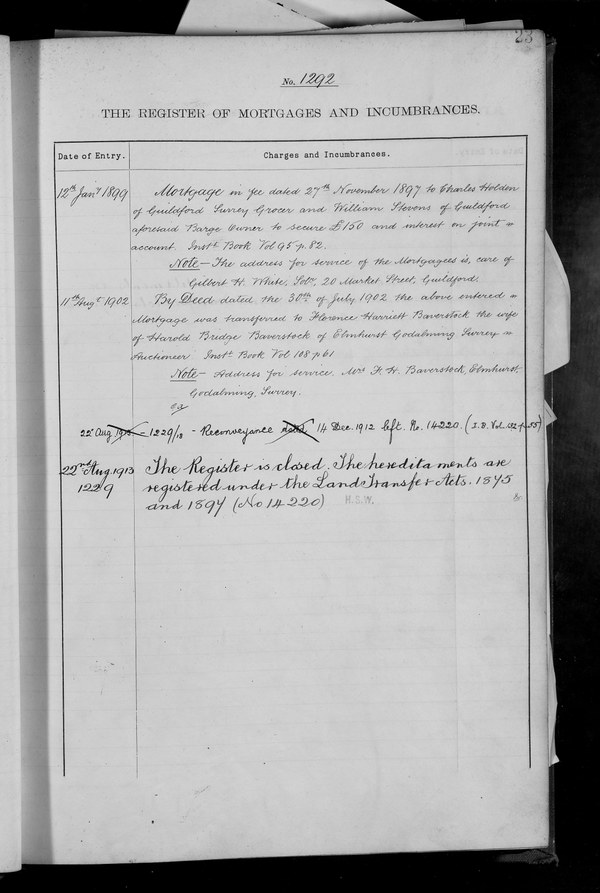 23
No. 1292
THE REGISTER OF MORTGAGES AND INCUMBRANCES.
Date of Entry.
Charges and Incumbrances.
12th Jany 1899 Mortgage in fee dated 27th November 1897 to Charles Holden
of Guildford Surrey Grocer and William Stevens of Guildford
aforesaid Barge Owner to secure £150 and interest on joint =
account. Inst. Book Vol 95 p. 82.
Note — The address for service of the Mortgagees is, care of
Gilbert H. White, Solr, 20 Market Street, Guildford.
11th Augt 1902 By Deed dated the 30th of July 1902 the above entered =
Mortgage was transferred to Florence Harriett Baverstock the wife
of Harold Bridge Baverstock of Elmhurst Godalming Surrey =
Auctioneer. Inst. Book Vol 108 p 61
Note — Address for service. Mrs F. H. Baverstock, Elmhurst,
Godalming, Surrey.
22 Aug 1913 — 1229/13 - Reconveyance dated 14 Dec. 1912 left. Re. 14220. (I.B. Vol. 132 p. 55)
22nd Aug. 1913 The Register is closed. The hereditaments are
1229 registered under the Land Transfer Acts. 1875
and 1897 (No 14220) H.S.W.